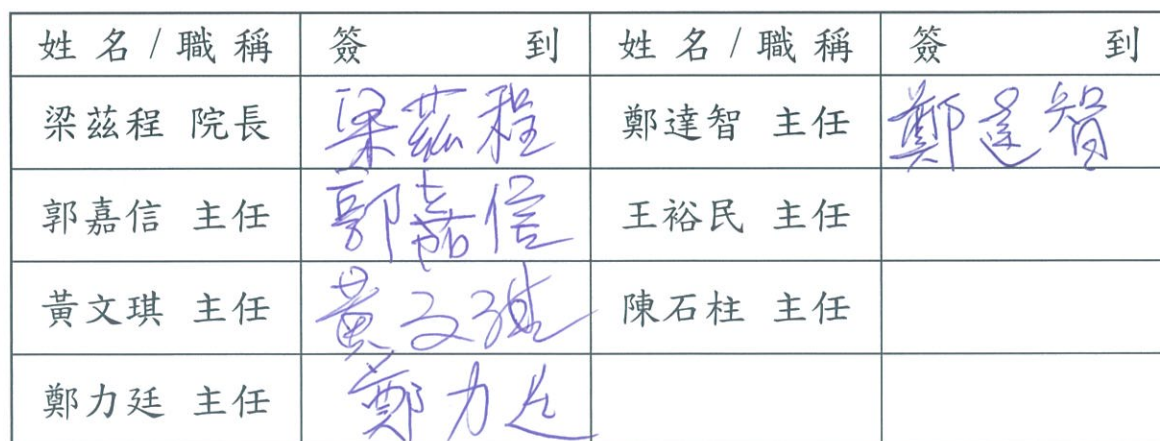 姓名/職稱 簽到 姓名/職稱 簽到
梁茲程 院長 梁茲程 鄭達智 主任 鄭達智
郭嘉信 主任 郭嘉信 王裕民 主任
黃文琪 主任 黃文琪 陳石柱 主任
鄭力廷 主任 鄭力廷